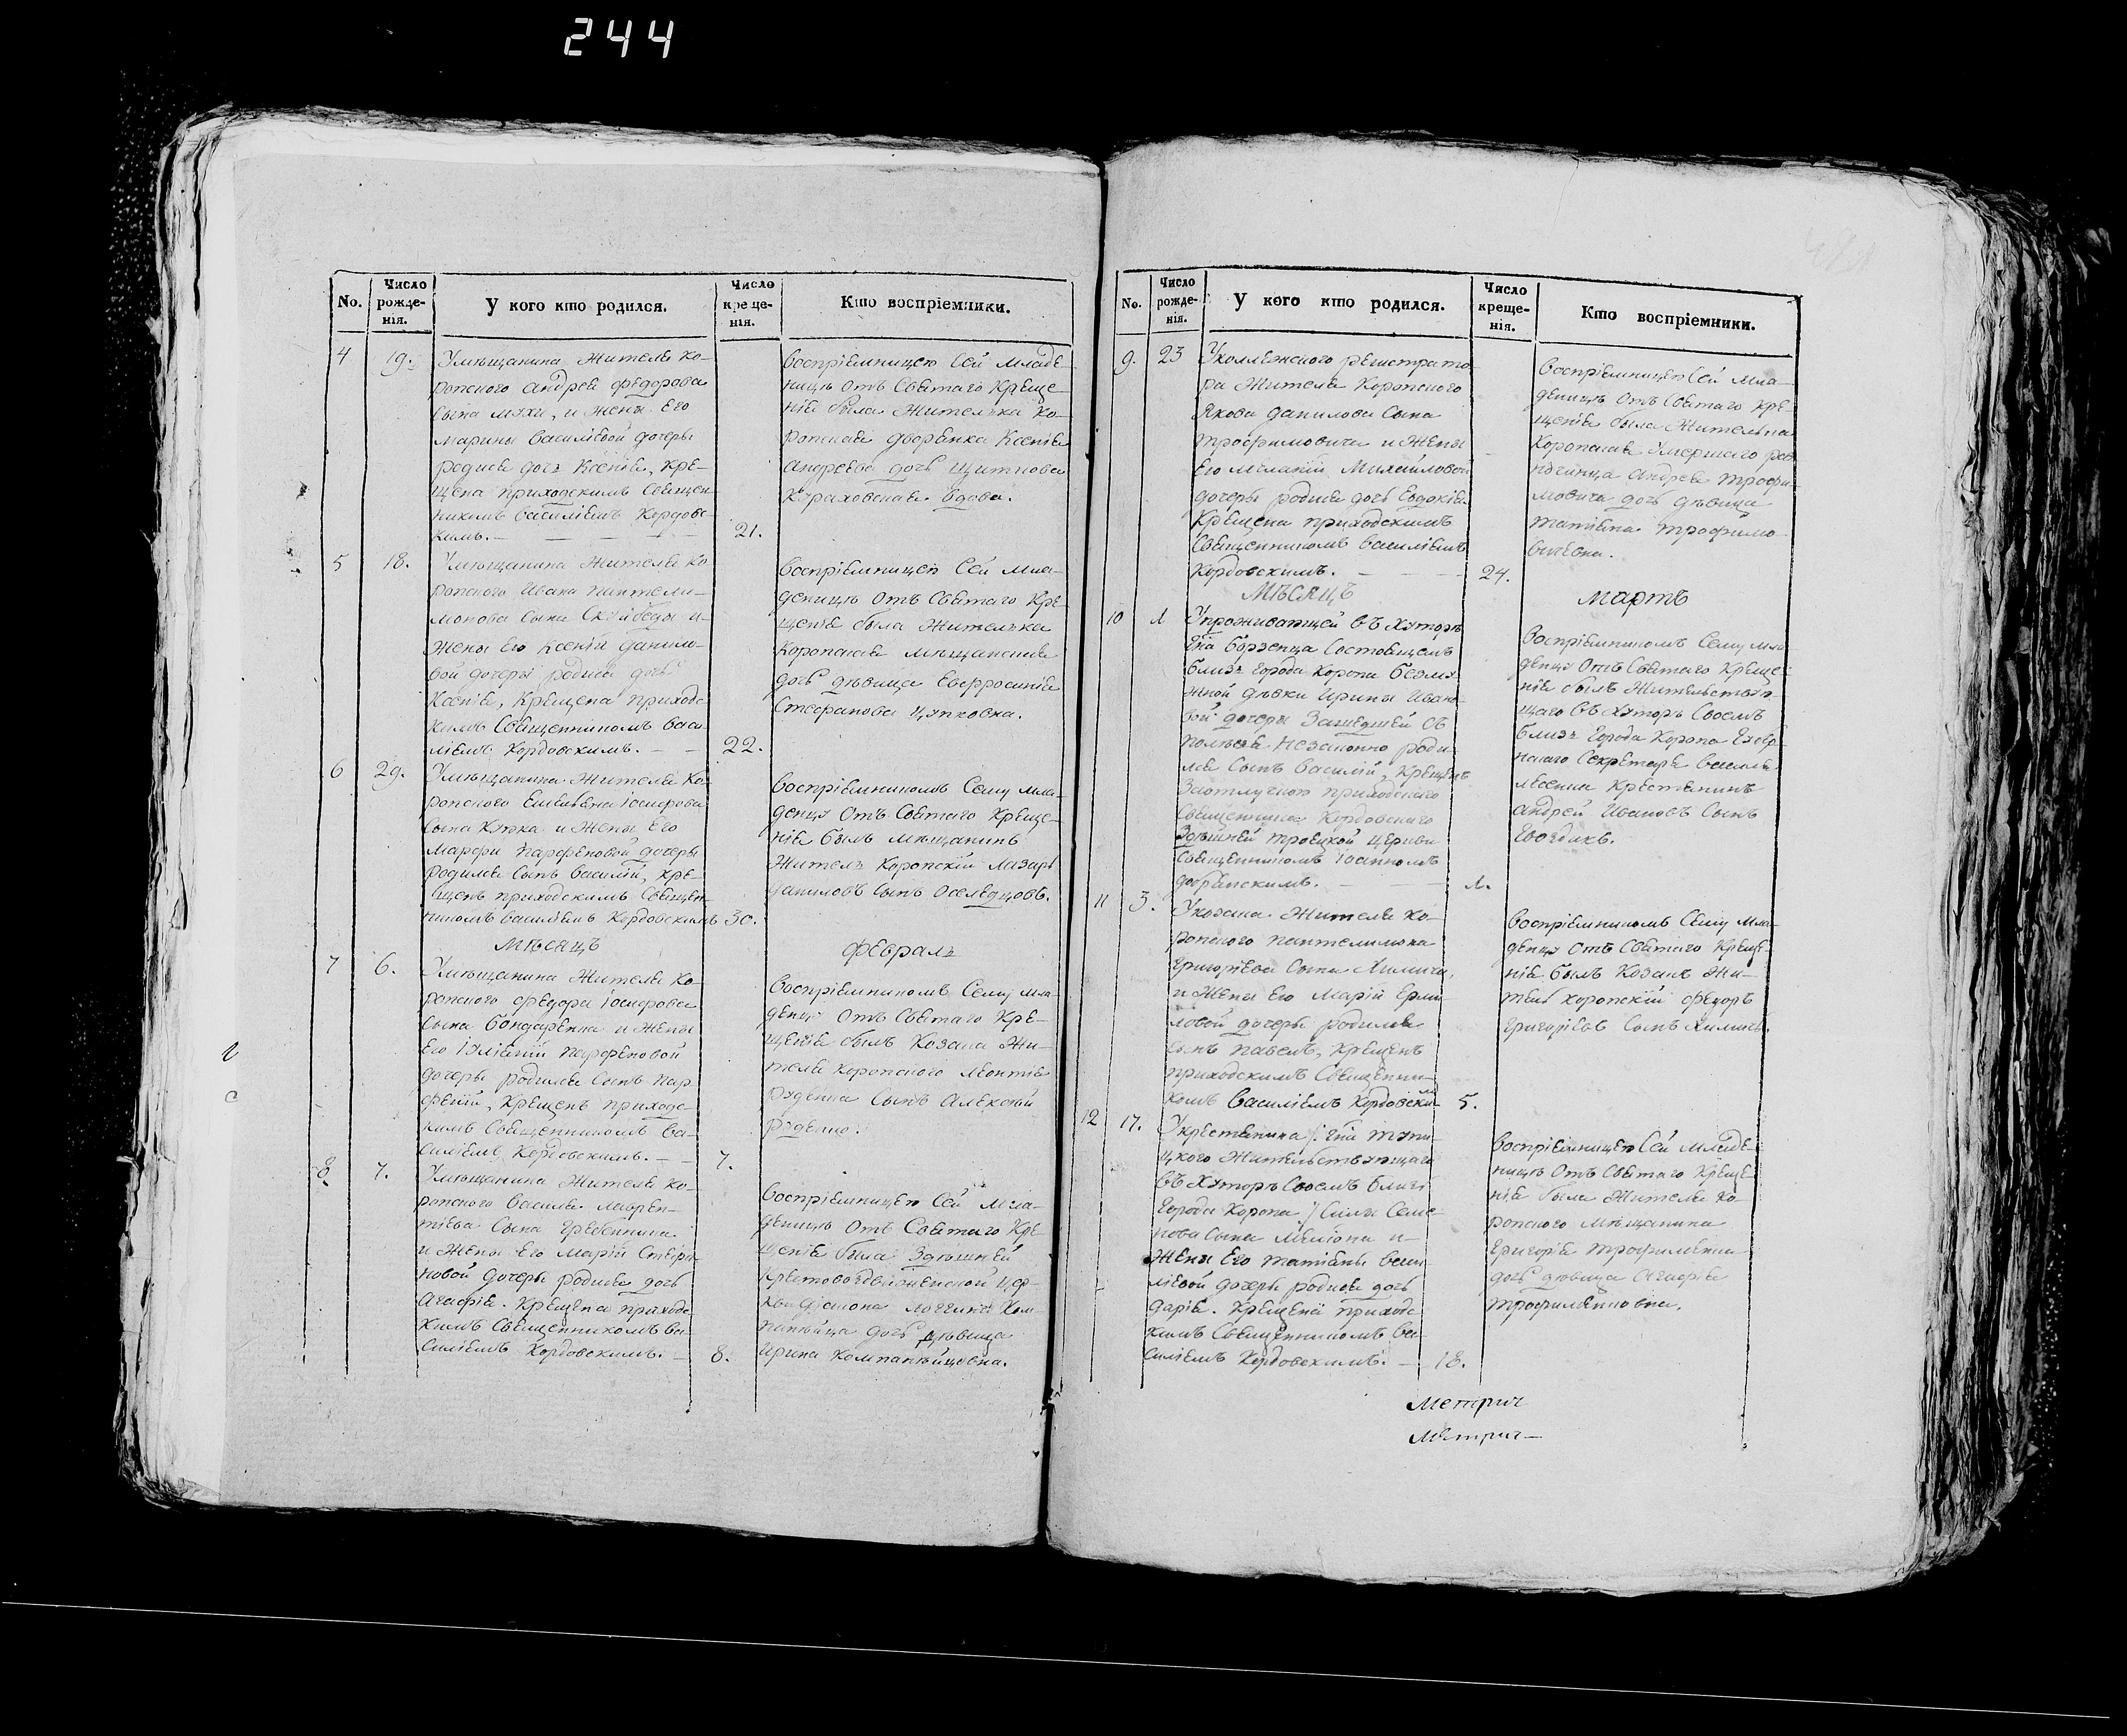 244
No.
Число рожде-нія.
У кого кто родился.
Число креще-нія.
Кто воспріемники.
4 19.
Умѣщанина Жителя Ко-
ропского Андрея Федорова
сына Мухи, и жены Его
Марины Василіевой дочеры
родися дочь Ксенія, Кре-
щена приходскимъ Священ
никомъ Василіемъ Кордовс-
кимъ. — 21.
Воспріемницею Сей Младе-
ницы Отъ Святаго Креще
нія была Жителька Ко-
ропская дворянка Ксенія
Андреева дочь
вдова.
5 18.
Умѣщанина Жителя Ко
ропского Ивана Пантели-
монова сына и
жены Его Ксеніи Данило-
вой дочери родися дочь
Ксенія, Крещена приходс
кимъ Священникомъ Васи-
ліемъ Кордовскимъ. — 22.
Воспріемницею Сей Мла-
деницы Отъ Святаго Кре-
щенія была Жителька
Коропская мѣщанская
дочь дѣвица Евфросинія
Стефанова
6 29.
Умѣщанина Жителя Ко-
ропского Емельяна Іосифова
сына и жены Его
Марфы Парфеновой дочеры
родился сынъ Василій, Кре-
щенъ приходскимъ Священ
никомъ Василіемъ Кордовскимъ 30.
Воспріемникомъ Сему мла-
денцу Отъ Святаго Креще-
нія былъ мѣщанинъ
Житель Коропскій Лазарь
Даниловъ сынъ Оселедцовъ.
Мѣсяцъ Февраль
7 6.
Умѣщанина Жителя Ко-
ропского Федора Іосифова
сына Бондаренка и жены
Его Іуліяніи Парфеновой
дочеры родился сынъ Пар
феній, Крещенъ приходс-
кимъ Священникомъ Ва-
силіемъ Кордовскимъ. — 7.
Воспріемникомъ Сему мла-
денцу Отъ Святаго Кре-
щенія былъ Козака Жи-
теля Коропского Леонтія
Руденка сынъ Алексѣй
Руденко.
8 7.
Умѣщанина Жителя Ко-
ропского Василя Лаврен-
тіева сына Гребенника
и жены Его Маріи Стефа-
новой дочеры родися дочь
Агафія. Крещена приходс
кимъ Священникомъ Ва-
силіемъ Кордовскимъ. — 8.
Воспріемницею Сей Мла-
деницы Отъ Святаго Кре
щенія была Здѣшней
Крестовоздвиженской цер-
кви діякона Ком-
панѣйца дочь дѣвица
Ирина Компанѣйцовна.
No.
Число рожде-нія.
У кого кто родился.
Число креще-нія.
Кто воспріемники.
9. 23
Уколлежского регистрато
ра Жителя Коропского
Якова Данилова сына
Трофимовича и жены
Его Меланіи Михайловой
дочеры родися дочь Евдокія
Крещена приходскимъ
Священникомъ Василіемъ
Кордовскимъ. — 24.
Воспріемницею Сей Мла-
деницы Отъ Святаго Кре
щенія была Жителька
Коропская Умершаго
Андрея Трофи-
мовича дочь дѣвица
Татіяна Трофимо-
вичевна.
Мѣсяцъ Мартъ
10
Упроживающей въ Хуторѣ
Гна Борзенца Состоящемъ
близъ города Коропа
дѣвки Ирины Ивано-
вой дочеры
незаконно роди-
ся сынъ Василій, Крещенъ
Заотлучкою приходского
Священника Кордовского
Здѣшней Троецкой Церкви
Священникомъ Іоанномъ
Воспріемникомъ Сему мла-
денцу Отъ Святаго Креще-
нія былъ Жительствую-
щаго въ Хуторѣ Своемъ
близъ города Коропа Губер-
нскаго Секретаря
Крестянинъ
Андрей Ивановъ сынъ
11 3.
Укозака Жителя Ко-
ропского Пантелимона
Григоріева сына Химича,
и жены Его Маріи
дочеры родился
сынъ Павелъ, Крещенъ
приходскимъ Священни-
комъ Василіемъ Кордовским 5.
Воспріемникомъ Сему мла-
денцу Отъ Святаго Креще-
нія былъ Козакъ Жи-
тель Коропскій Федоръ
Григоріевъ сынъ Химичъ.
12 17.
Укрестянина Гна
Жительствующаго
въ Хуторѣ Своемъ близъ
города Коропа Семе-
нова сына и
жены Его Татіаны Васи-
ліевой дочеры родися дочь
Дарія. Крещена приходс
кимъ Священникомъ Ва-
силіемъ Кордовскимъ. — 18.
Воспріемницею Сей Младе-
ницы Отъ Святаго Креще
нія была Жителя Ко-
ропского мѣщанина
Григорія
дочь дѣвица Агафія
Метрич
Метрич—